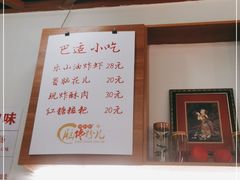 巴适小吃
乐山油炸虾 28元
首脑花儿 20元
现炸酥肉 30元
红糖糍粑 20元
味